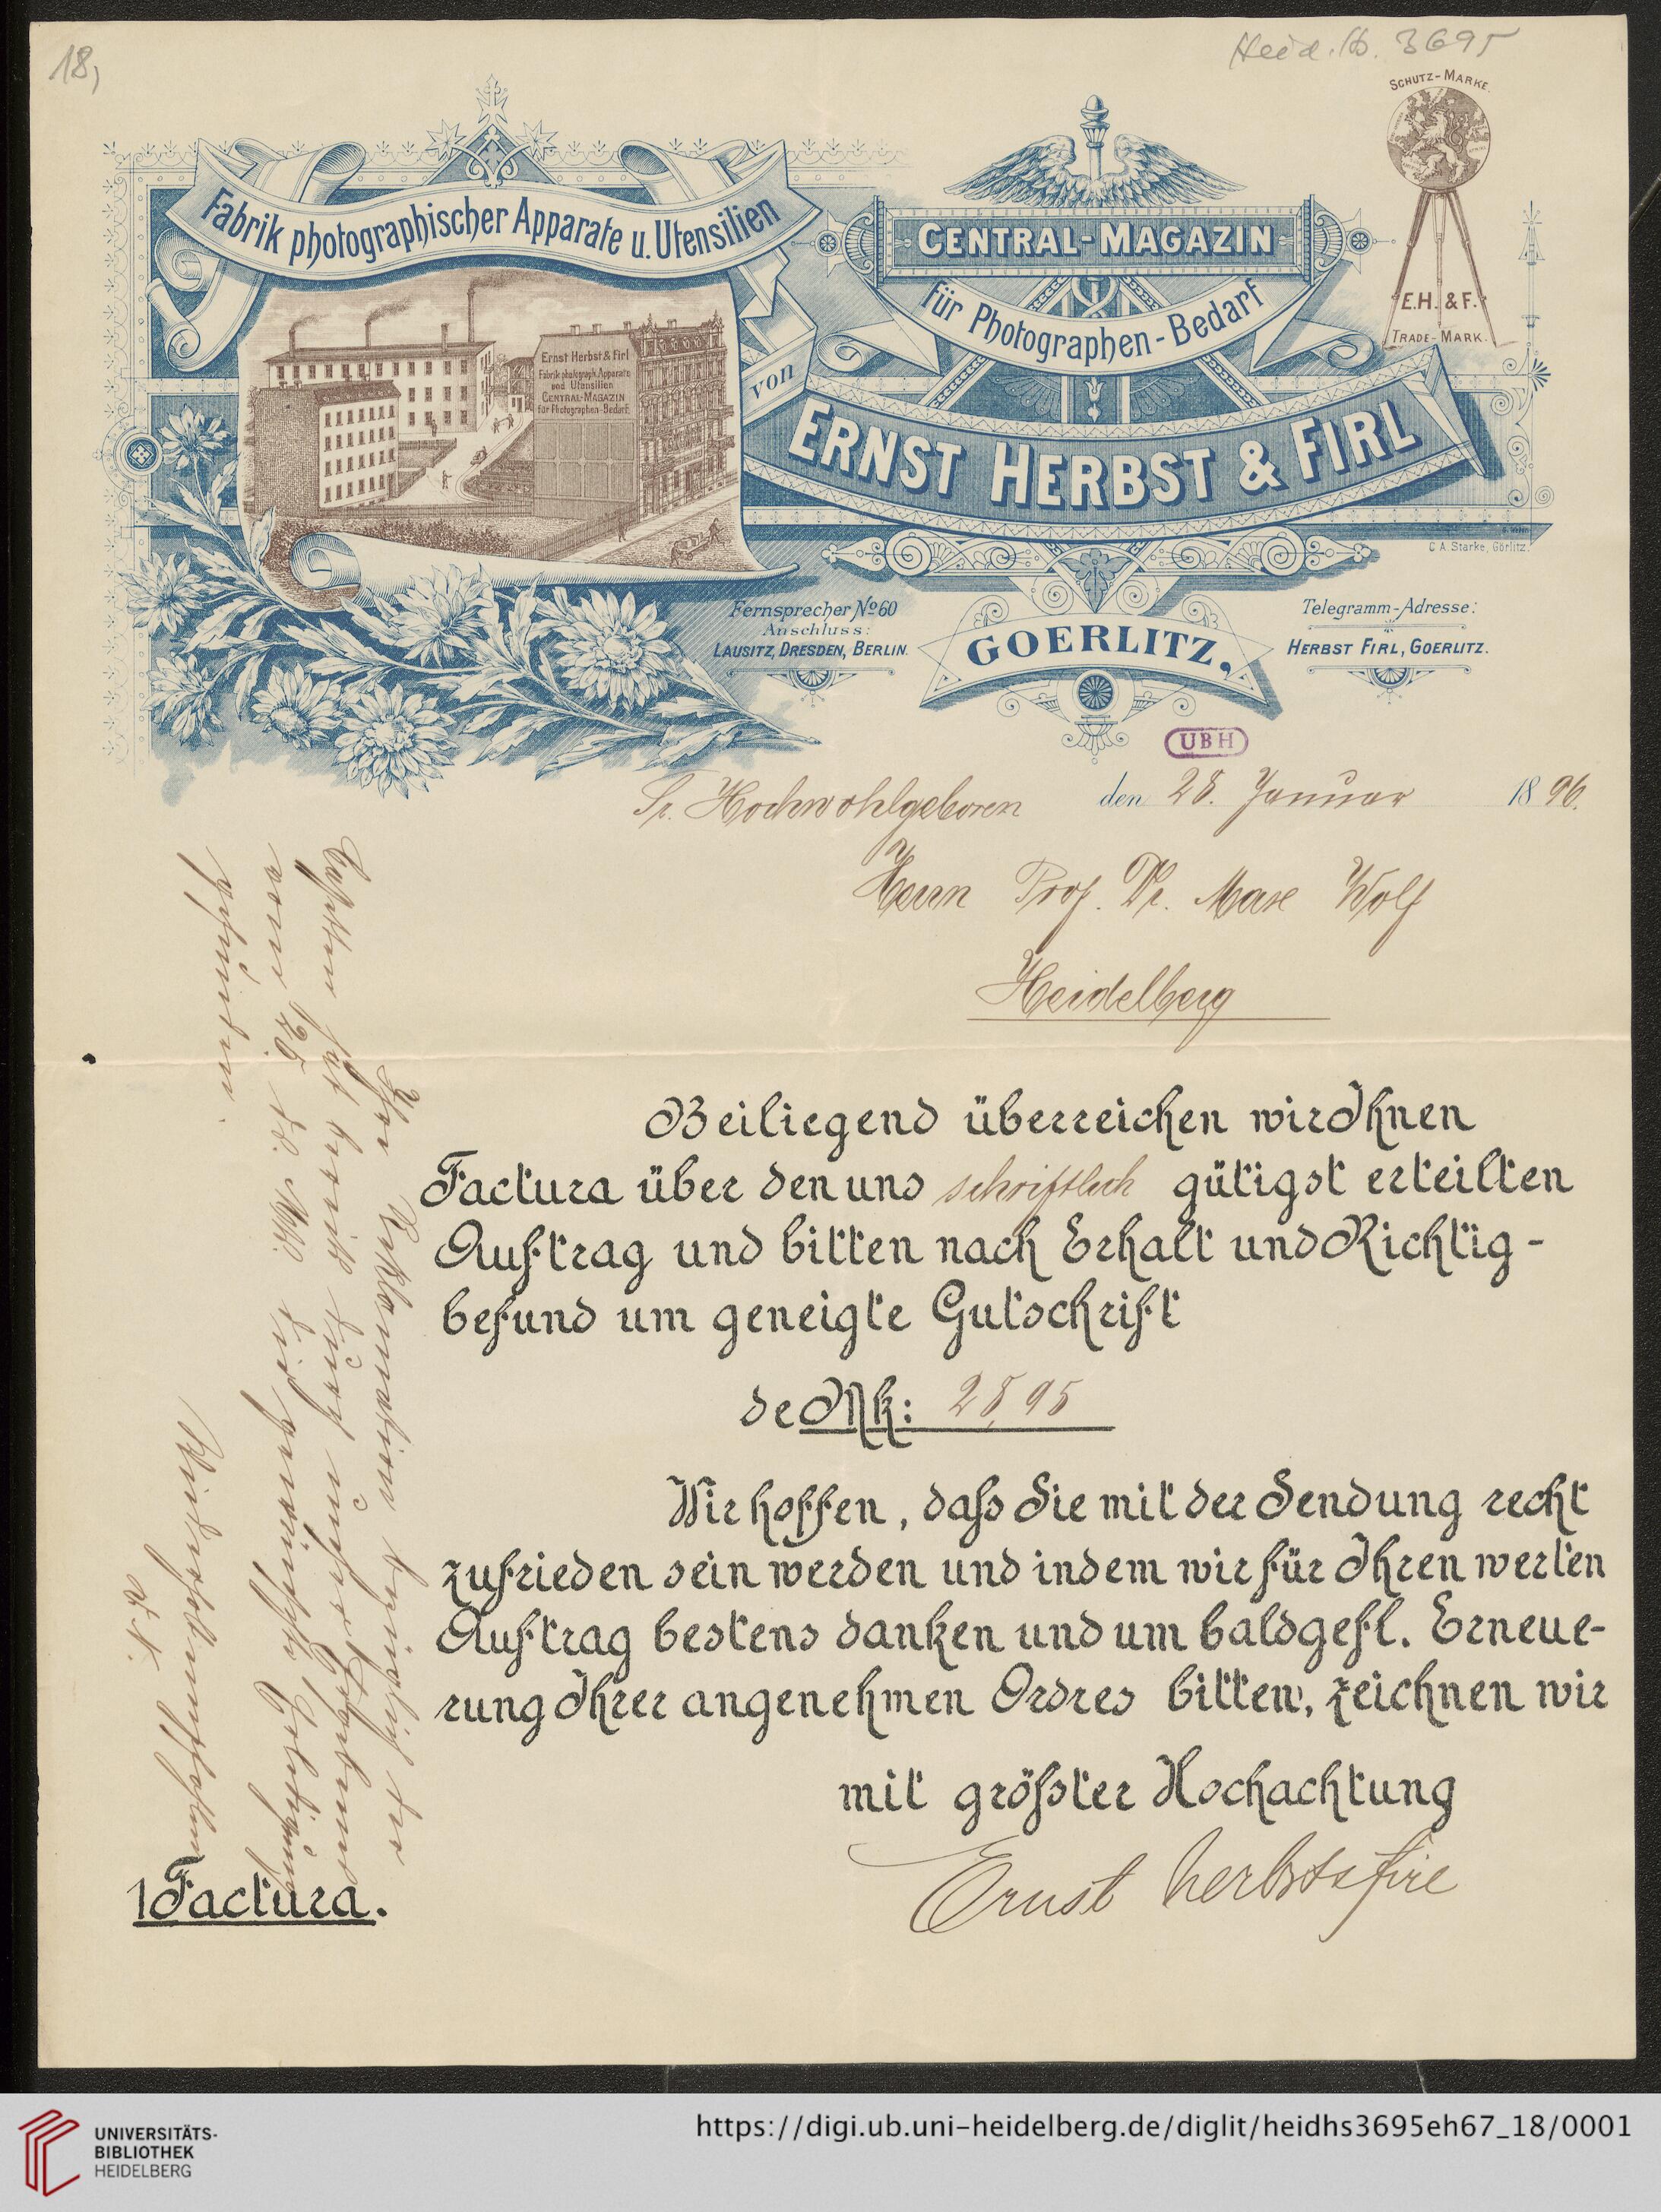 18,
Heid. Hs. 3695
SCHUTZ-MARKE.
Fabrik photographischer Apparate u. Utensilien
CENTRAL-MAGAZIN
für Photographen-Bedarf
E.H. & F.
TRADE-MARK.
Ernst Herbst & Firl
Fabrik photograph. Apparate
und Utensilien
CENTRAL-MAGAZIN
für Photographen-Bedarf.
von
ERNST HERBST & FIRL
C. A. Starke, Görlitz.
Fernsprecher No 60
Anschluss:
LAUSITZ, DRESDEN, BERLIN.
GOERLITZ,
Telegramm-Adresse:
HERBST FIRL, GOERLITZ.
UBH
Sr. Hochwohlgeboren den 28. Januar 1896.
Herrn Prof. Dr. Max Wolf
Heidelberg
Beiliegend überreichen wir Ihnen
Factura über den uns schriftlich gütigst erteilten
Auftrag und bitten nach Erhalt und Richtig-
befund um geneigte Gutschrift
de Mk: 28,95
Wir hoffen, dass Sie mit der Sendung recht
zufrieden sein werden und indem wir für Ihren werten
Auftrag bestens danken und um baldgefl. Erneue-
rung Ihrer angenehmen Ordres bitten, zeichnen wir
mit grösster Hochachtung
Ernst Herbst & Firl
1 Factura.
Ihre Reklamation bezüglich der
Cassetten hat bereits durch unser Ergebenes
vom 25 ds. Mts. die gewünschte Erledigung
gefunden.
D. O.